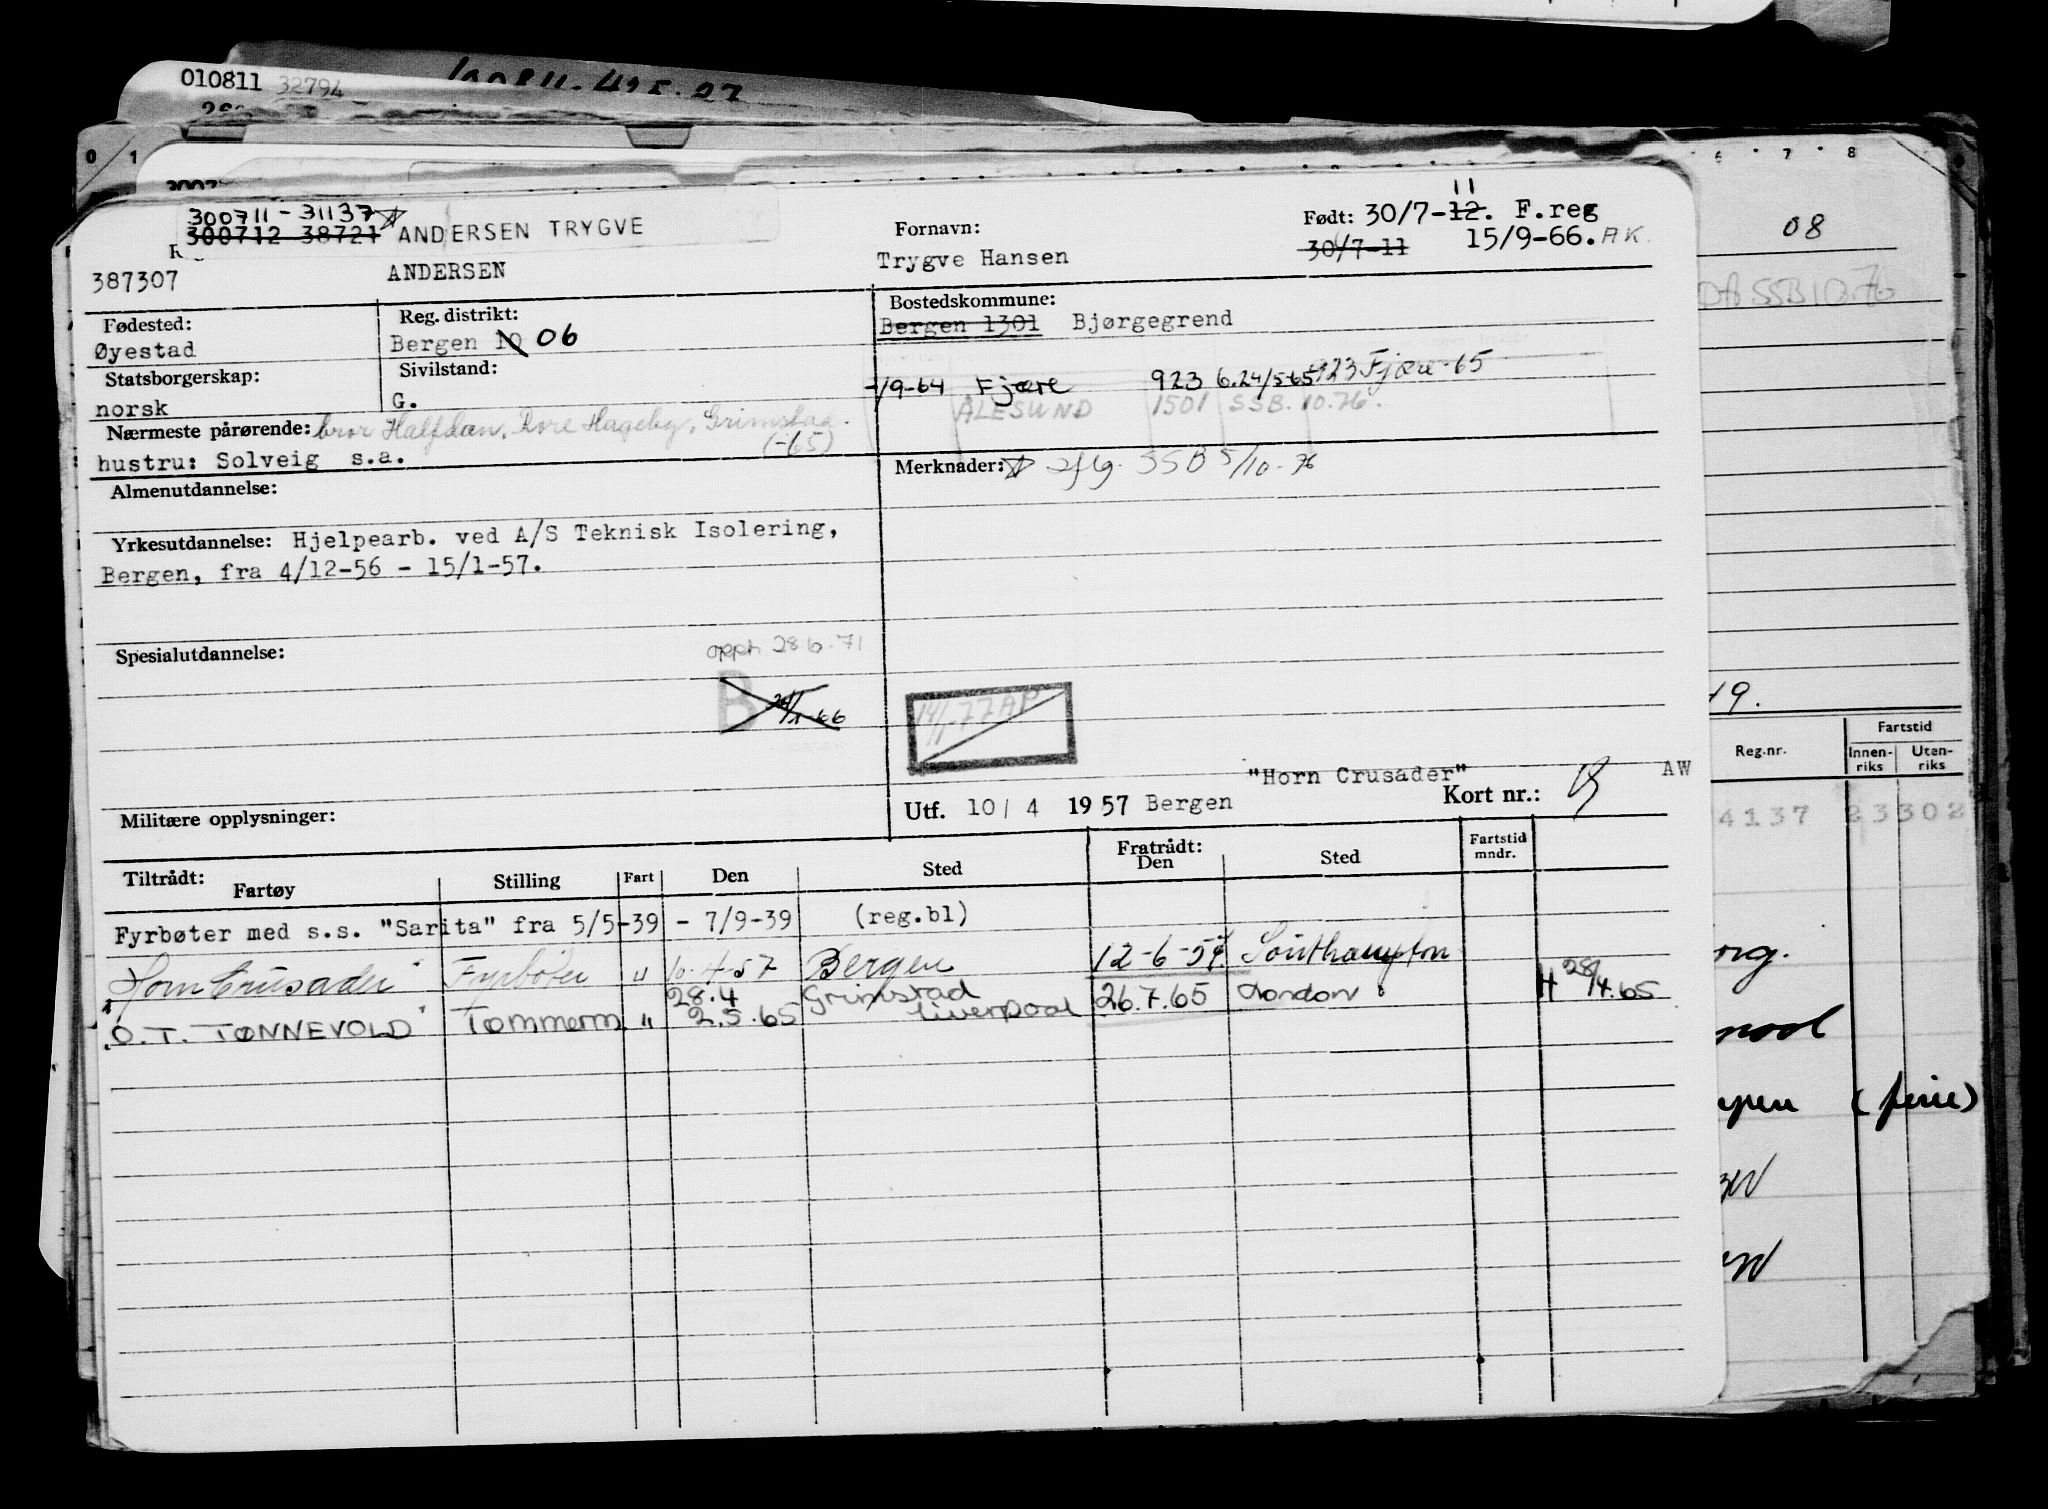 010811 32794
0 1
6 7 8
08
300711-31137
300712 38721 ANDERSEN TRYGVE
387307 ANDERSEN
Fornavn:
Trygve Hansen
Født: 30/7-12. 11 F.reg
30/7-11 15/9-66. AK.
Fødested:
Øyestad
Reg. distrikt:
Bergen 10 06
Bostedskommune:
Bergen 1301 Bjørgegrend
Statsborgerskap:
norsk
Sivilstand:
G.
-/9-64 Fjære 923 6.24/5-65 923 Fjære-65
ÅLESUND 1501 SSB. 10.76.
Nærmeste pårørende: bror Halfdan, Rore Hageby, Grimstad.
(-65)
hustru: Solveig s.a.
Merknader: iflg. SSB 5/10-76
Almenutdannelse:
Yrkesutdannelse: Hjelpearb. ved A/S Teknisk Isolering,
Bergen, fra 4/12-56 - 15/1-57.
Spesialutdannelse:
opph 28 6.71
B
14/1-77 AP
Militære opplysninger:
"Horn Crusader" AW
Utf. 10/ 4 1957 Bergen Kort nr.:
Tiltrådt:
Fartøy Stilling Fart Den Sted
Fratrådt:
Den Sted
Fartstid
mndr.
Fyrbøter med s.s. "Sarita" fra 5/5-39 - 7/9-39 (reg.bl)
"Horn Crusader" Fyrbøter " 10-4-57 Bergen 12-6-57. Southampton
28.4 Grimstad
"O. T. TØNNEVOLD" Tømmerm " 2.5.65 Liverpool 26.7.65 London H 28/4.65
19.
Reg.nr.
Fartstid
Innen-
riks
Uten-
riks
4137 23302
(ferie)